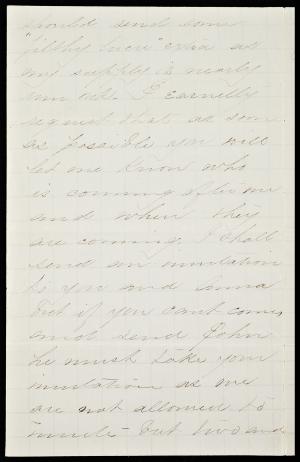 should send some
"filthy lucre" as
my supply is nearly
run out. I earnestly
request that as soon
as possible you will
let me know who
is coming after me
and when they
are coming. I shall
send an invitation
to you and Anna
but if you cant come,
and send John
he must take your
invitation as we
are not allowed to
invite but two and